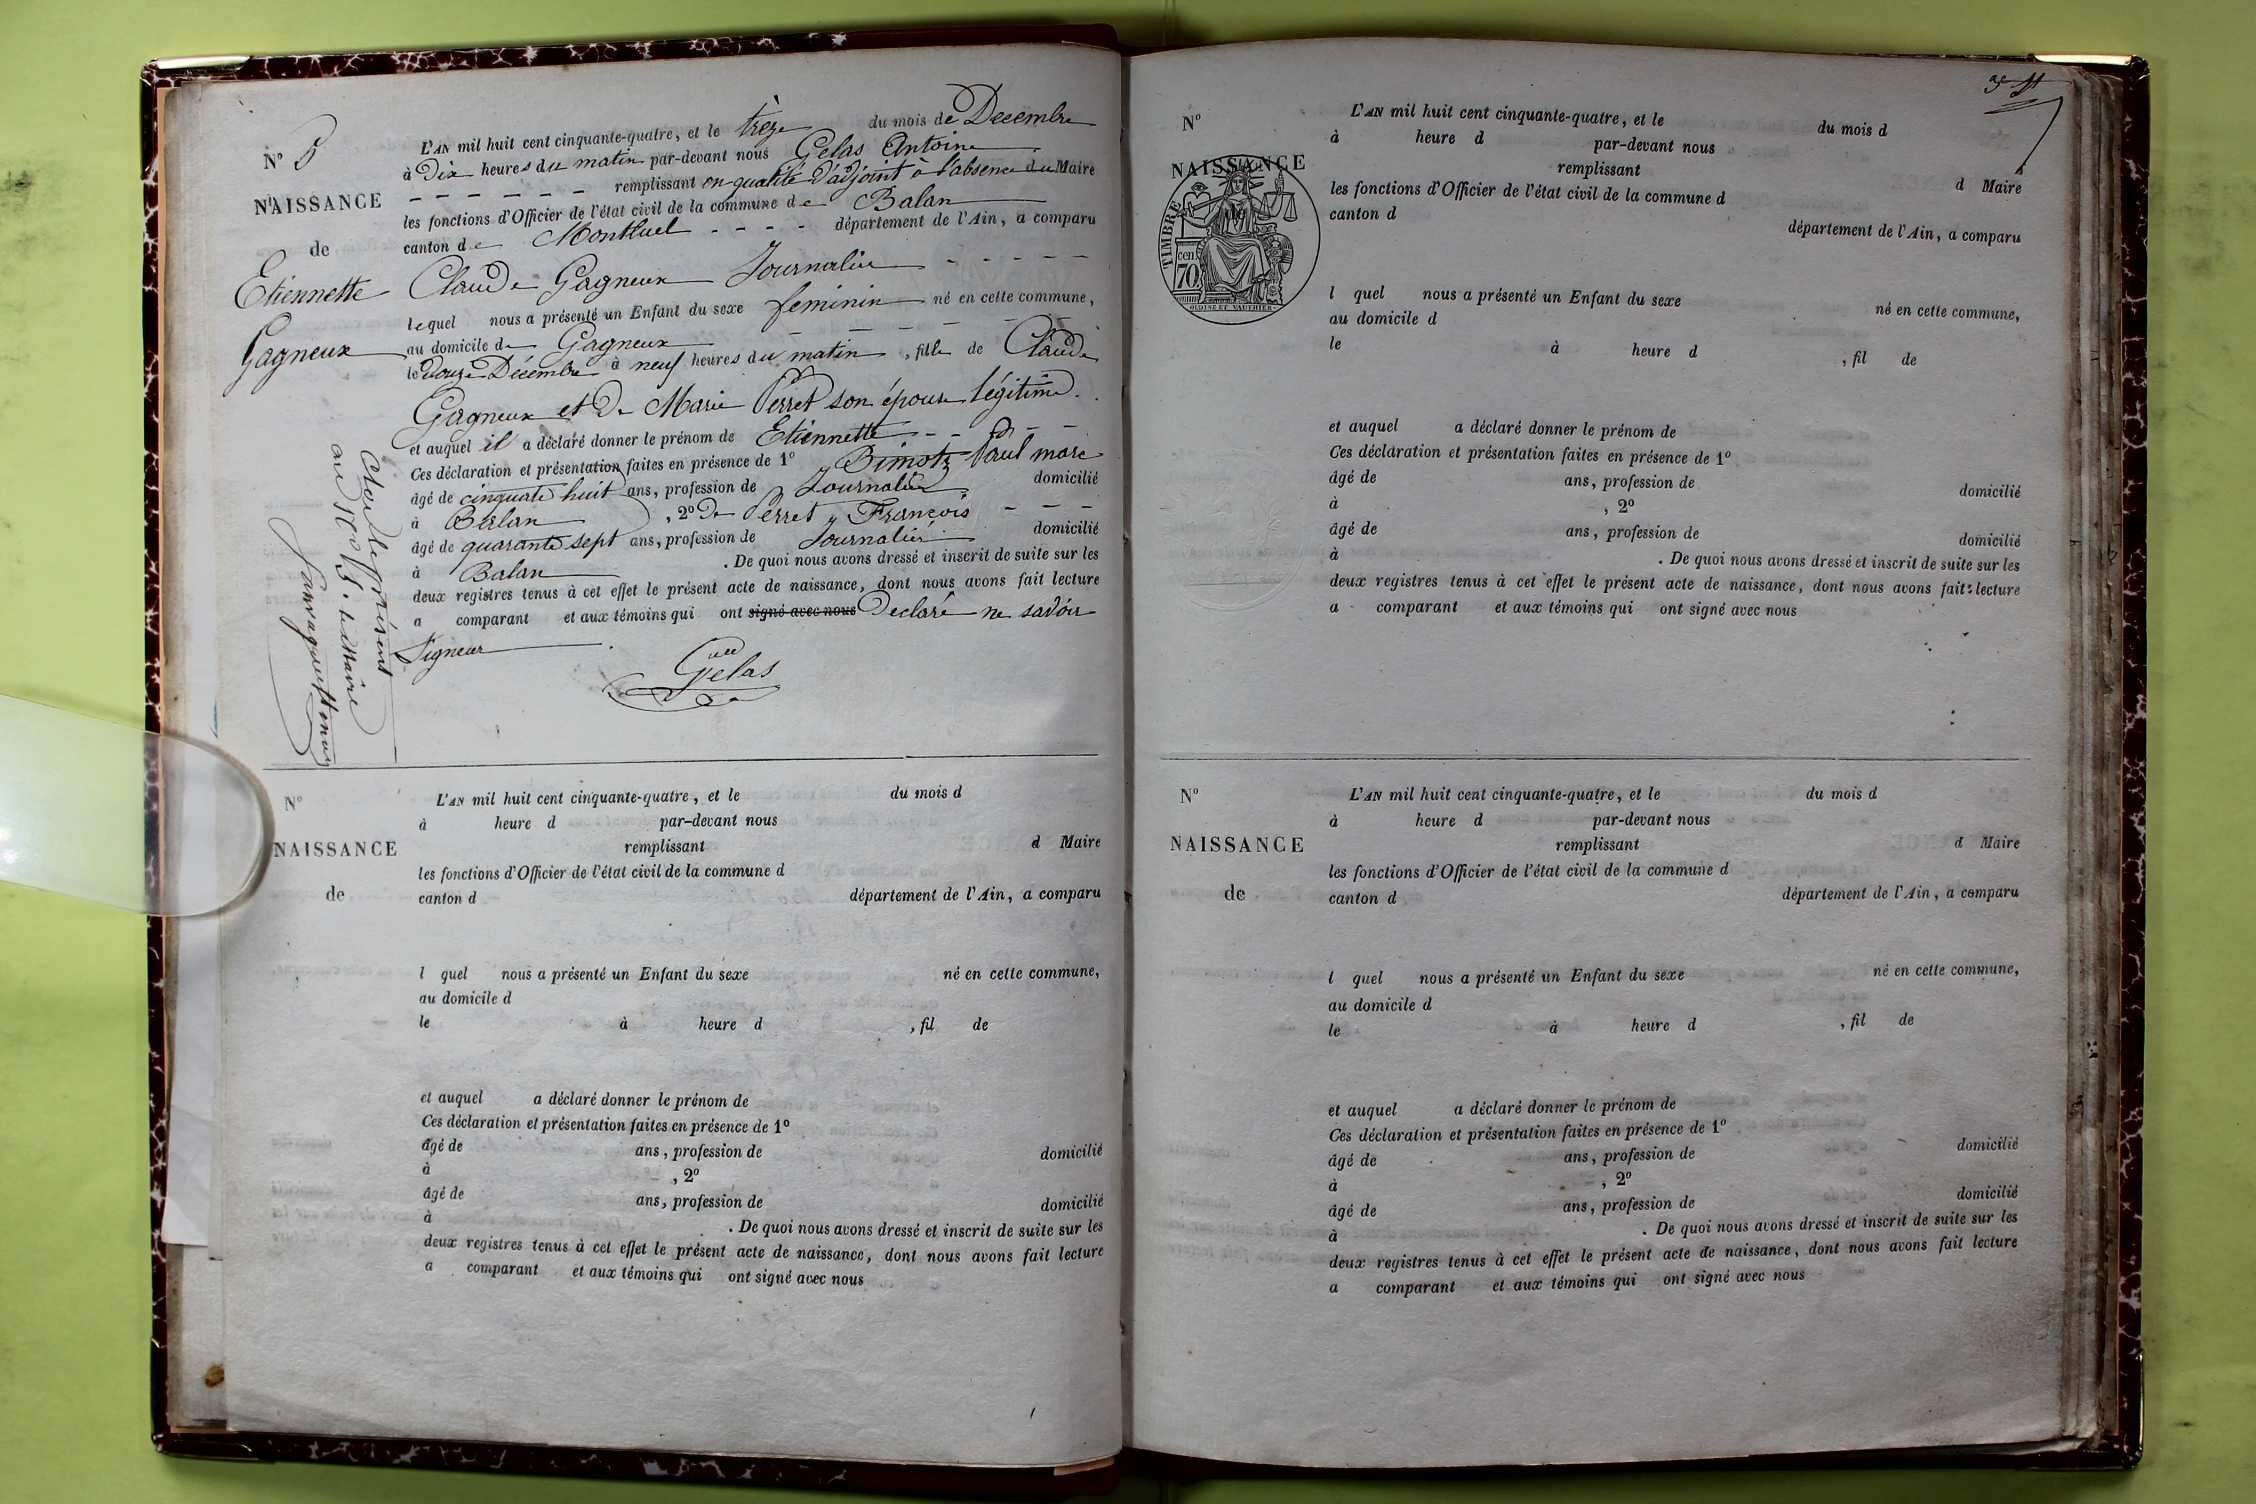 N° 5
NAISSANCE
de
Etiennette
Gagneux
L'AN mil huit cent cinquante-quatre, et le trèze du mois de Decembre
à Dix heures du matin par-devant nous Gelas Antoine
remplissant en qualité d'adjoint à l'absence du Maire
les fonctions d'Officier de l'état civil de la commune de Balan
canton de Montluel département de l'Ain, a comparu
Claude Gagneux Journalier
lequel nous a présenté un Enfant du sexe feminin né en cette commune,
au domicile de Gagneux
le Douze Décembre à neuf heures du matin, fille de Claude
Gagneux et De Marie Perret son épouse légitime.
et auquel il a déclaré donner le prénom de Etiennette
Ces déclaration et présentation faites en présence de 1° Paul marc
âgé de cinquate huit ans, profession de Journalier domicilié
à Balan, 2° De Perret François
âgé de quarante sept ans, profession de Journalier domicilié
à Balan. De quoi nous avons dressé et inscrit de suite sur les
deux registres tenus à cet effet le présent acte de naissance, dont nous avons fait lecture
a comparant et aux témoins qui ont signé avec nous Declaré ne savoir
Signer
Gelas
Clos le présent
au N° 5. le Maire
N°
NAISSANCE
de
L'AN mil huit cent cinquante-quatre, et le du mois d
à heure d par-devant nous
remplissant d Maire
les fonctions d'Officier de l'état civil de la commune d
canton d département de l'Ain, a comparu
l quel nous a présenté un Enfant du sexe né en cette commune,
au domicile d
le à heure d , fil de
et auquel a déclaré donner le prénom de
Ces déclaration et présentation faites en présence de 1°
âgé de ans, profession de domicilié
à , 2°
âgé de ans, profession de domicilié
à . De quoi nous avons dressé et inscrit de suite sur les
deux registres tenus à cet effet le présent acte de naissance, dont nous avons fait lecture
a comparant et aux témoins qui ont signé avec nous
N°
NAISSANCE
TIMBRE
cen
70
L'AN mil huit cent cinquante-quatre, et le du mois d
à heure d par-devant nous
remplissant d Maire
les fonctions d'Officier de l'état civil de la commune d
canton d département de l'Ain, a comparu
l quel nous a présenté un Enfant du sexe né en cette commune,
au domicile d
le à heure d , fil de
et auquel a déclaré donner le prénom de
Ces déclaration et présentation faites en présence de 1°
âgé de ans, profession de domicilié
à , 2°
âgé de ans, profession de domicilié
à . De quoi nous avons dressé et inscrit de suite sur les
deux registres tenus à cet effet le présent acte de naissance, dont nous avons fait lecture
a comparant et aux témoins qui ont signé avec nous
N°
NAISSANCE
de
L'AN mil huit cent cinquante-quatre, et le du mois d
à heure d par-devant nous
remplissant d Maire
les fonctions d'Officier de l'état civil de la commune d
canton d département de l'Ain, a comparu
l quel nous a présenté un Enfant du sexe né en cette commune,
au domicile d
le à heure d , fil de
et auquel a déclaré donner le prénom de
Ces déclaration et présentation faites en présence de 1°
âgé de ans, profession de domicilié
à , 2°
âgé de ans, profession de domicilié
à . De quoi nous avons dressé et inscrit de suite sur les
deux registres tenus à cet effet le présent acte de naissance, dont nous avons fait lecture
a comparant et aux témoins qui ont signé avec nous